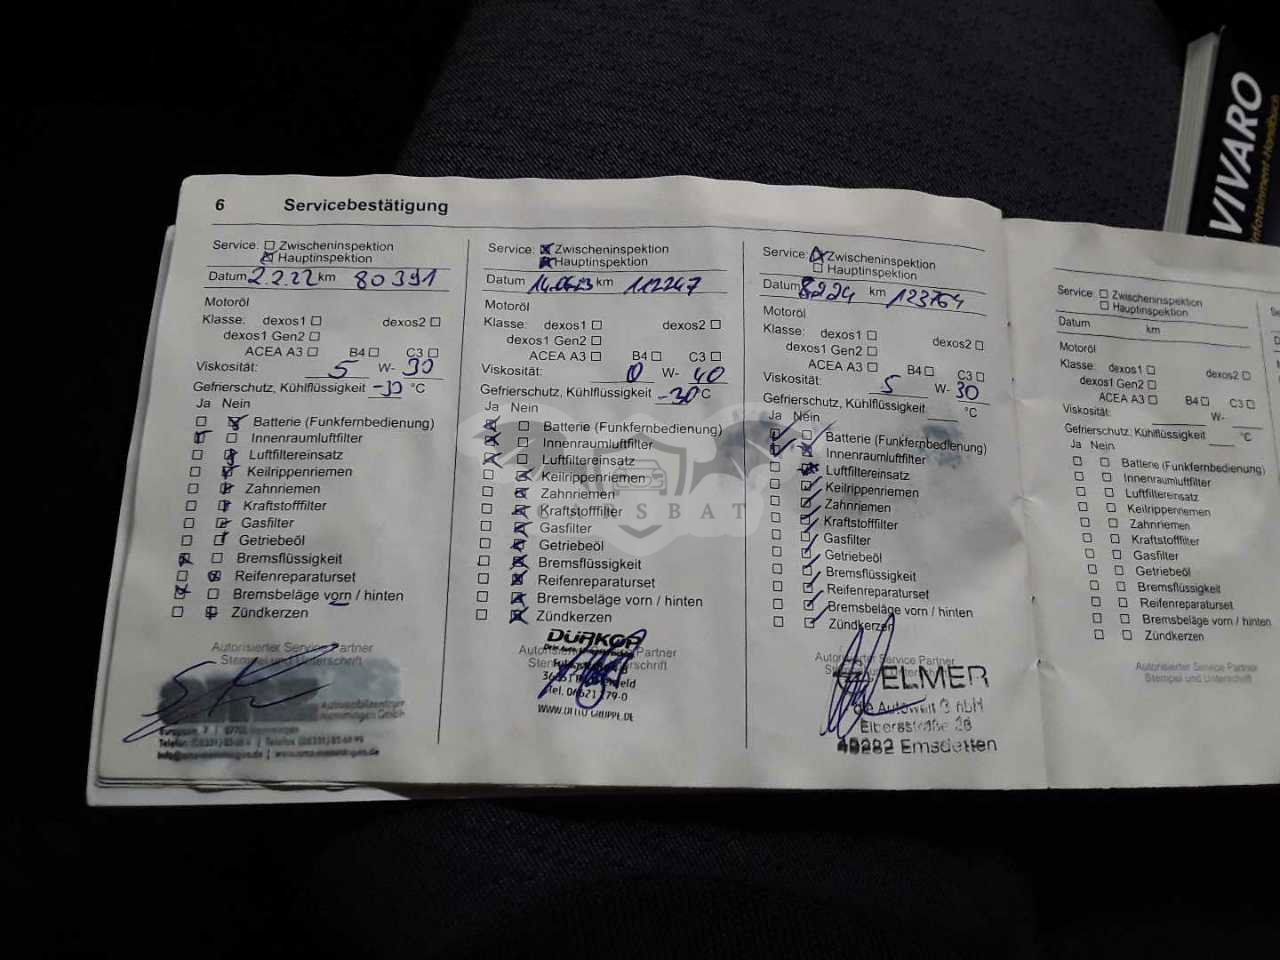 6 Servicebestätigung
Service: Zwischeninspektion
Hauptinspektion
Datum 2.2.22 km 80391
Motoröl
Klasse: dexos1 dexos2
dexos1 Gen2
ACEA A3 B4 C3
Viskosität: 5 W- 30
Gefrierschutz, Kühlflüssigkeit -30 °C
Ja Nein
Batterie (Funkfernbedienung)
Innenraumluftfilter
Luftfiltereinsatz
Keilrippenriemen
Zahnriemen
Kraftstofffilter
Gasfilter
Getriebeöl
Bremsflüssigkeit
Reifenreparaturset
Bremsbeläge vorn / hinten
Zündkerzen
Autorisierter Service Partner
Stempel und Unterschrift
Service: Zwischeninspektion
Hauptinspektion
Datum km 112247
Motoröl
Klasse: dexos1 dexos2
dexos1 Gen2
ACEA A3 B4 C3
Viskosität: 0 W- 40
Gefrierschutz, Kühlflüssigkeit -30 °C
Ja Nein
Batterie (Funkfernbedienung)
Innenraumluftfilter
Luftfiltereinsatz
Keilrippenriemen
Zahnriemen
Kraftstofffilter
Gasfilter
Getriebeöl
Bremsflüssigkeit
Reifenreparaturset
Bremsbeläge vorn / hinten
Zündkerzen
DÜRKOP
Partner
Service: Zwischeninspektion
Hauptinspektion
Datum 8.2.24 km 123764
Motoröl
Klasse: dexos1 dexos2
dexos1 Gen2
ACEA A3 B4 C3
Viskosität: 5 W- 30
Gefrierschutz, Kühlflüssigkeit °C
Ja Nein
Batterie (Funkfernbedienung)
Innenraumluftfilter
Luftfiltereinsatz
Keilrippenriemen
Zahnriemen
Kraftstofffilter
Gasfilter
Getriebeöl
Bremsflüssigkeit
Reifenreparaturset
Bremsbeläge vorn / hinten
Zündkerzen
Autorisierter Service Partner
ELMER
die Autowelt GmbH
Elbersstraße 28
48282 Emsdetten
Service: Zwischeninspektion
Hauptinspektion
Datum km
Motoröl
Klasse: dexos1 dexos2
dexos1 Gen2
ACEA A3 B4 C3
Viskosität: W-
Gefrierschutz, Kühlflüssigkeit °C
Ja Nein
Batterie (Funkfernbedienung)
Innenraumluftfilter
Luftfiltereinsatz
Keilrippenriemen
Zahnriemen
Kraftstofffilter
Gasfilter
Getriebeöl
Bremsflüssigkeit
Reifenreparaturset
Bremsbeläge vorn / hinten
Zündkerzen
Autorisierter Service Partner
Stempel und Unterschrift
VIVARO
Infotainment-Handbuch